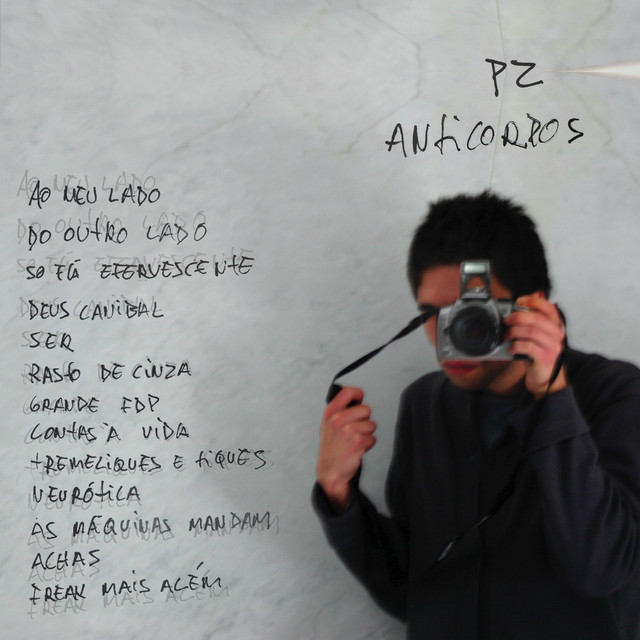 PZ
ANTICORPOS
AO MEU LADO
DO OUTRO LADO
SÓ FÁ EFERVESCENTE
DEUS CANIBAL
SER
RASTO DE CINZA
GRANDE FDP
CONTAS À VIDA
TREMELIQUES E TIQUES
NEURÓTICA
AS MÁQUINAS MANDAM
ACHAS
FREAK MAIS ALÉM